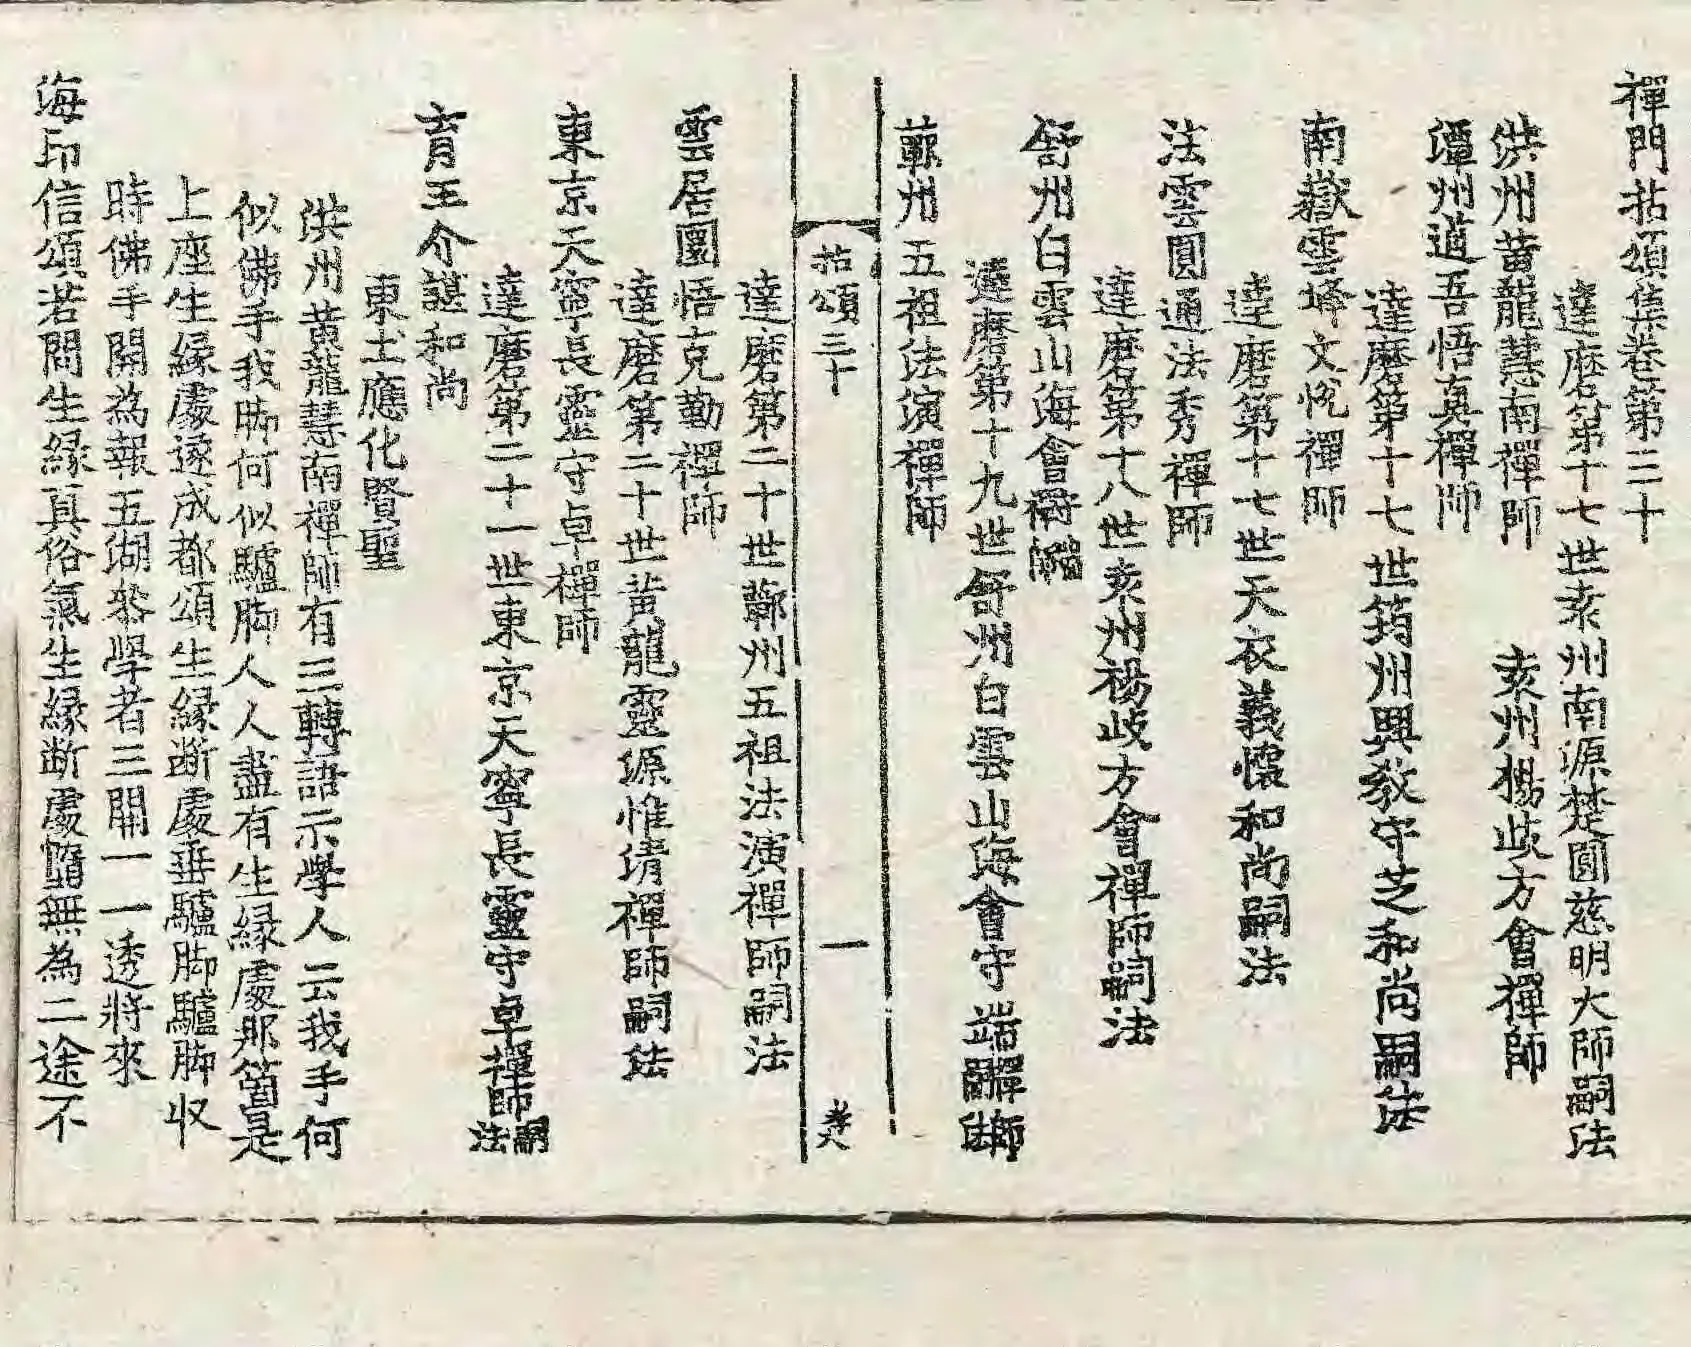 禪門拈頌集卷第三十
達磨第十七世袁州南源楚圓慈明大師嗣法
洪州黃龍慧南禪師　袁州楊歧方會禪師
潭州道吾悟真禪師
達磨第十七世筠州興教守芝和尚嗣法
南嶽雲峰文悅禪師
達磨第十七世天衣義懷和尚嗣法
法雲圓通法秀禪師
達磨第十八世袁州楊歧方會禪師嗣法
舒州白雲山海會守端禪師
達磨第十九世舒州白雲山海會守端禪師嗣法
蘄州五祖法演禪師
拈頌三十　一　孝八
達磨第二十世蘄州五祖法演禪師嗣法
雲居圜悟克勤禪師
達磨第二十世黃龍靈源惟清禪師嗣法
東京天寧長靈守卓禪師
達磨第二十一世東京天寧長靈守卓禪師嗣法
育王介諶和尚
東土應化賢聖
洪州黃龍慧南禪師有三轉語示學人云我手何
似佛手我脚何似驢脚人人盡有生緣處那箇是
上座生緣處遂成都頌生緣断處垂驢脚驢脚收
時佛手開為報五湖叅學者三關一一透將來
海印信頌若問生緣真俗氣生緣断處墮無為二途不